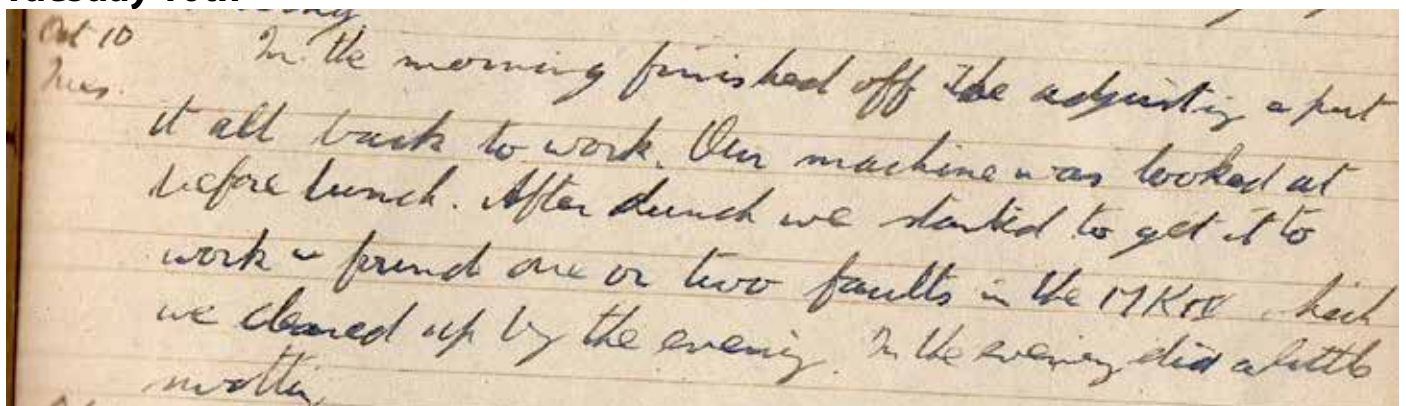 Tuesday 10th
Oct 10 In the morning finished off the adjusting & put
Tues. it all back to work. Our machine was looked at
before lunch. After lunch we started to get it to
work & found one or two faults in the which
we cleared up by the evening. In the evening did a little
swotting